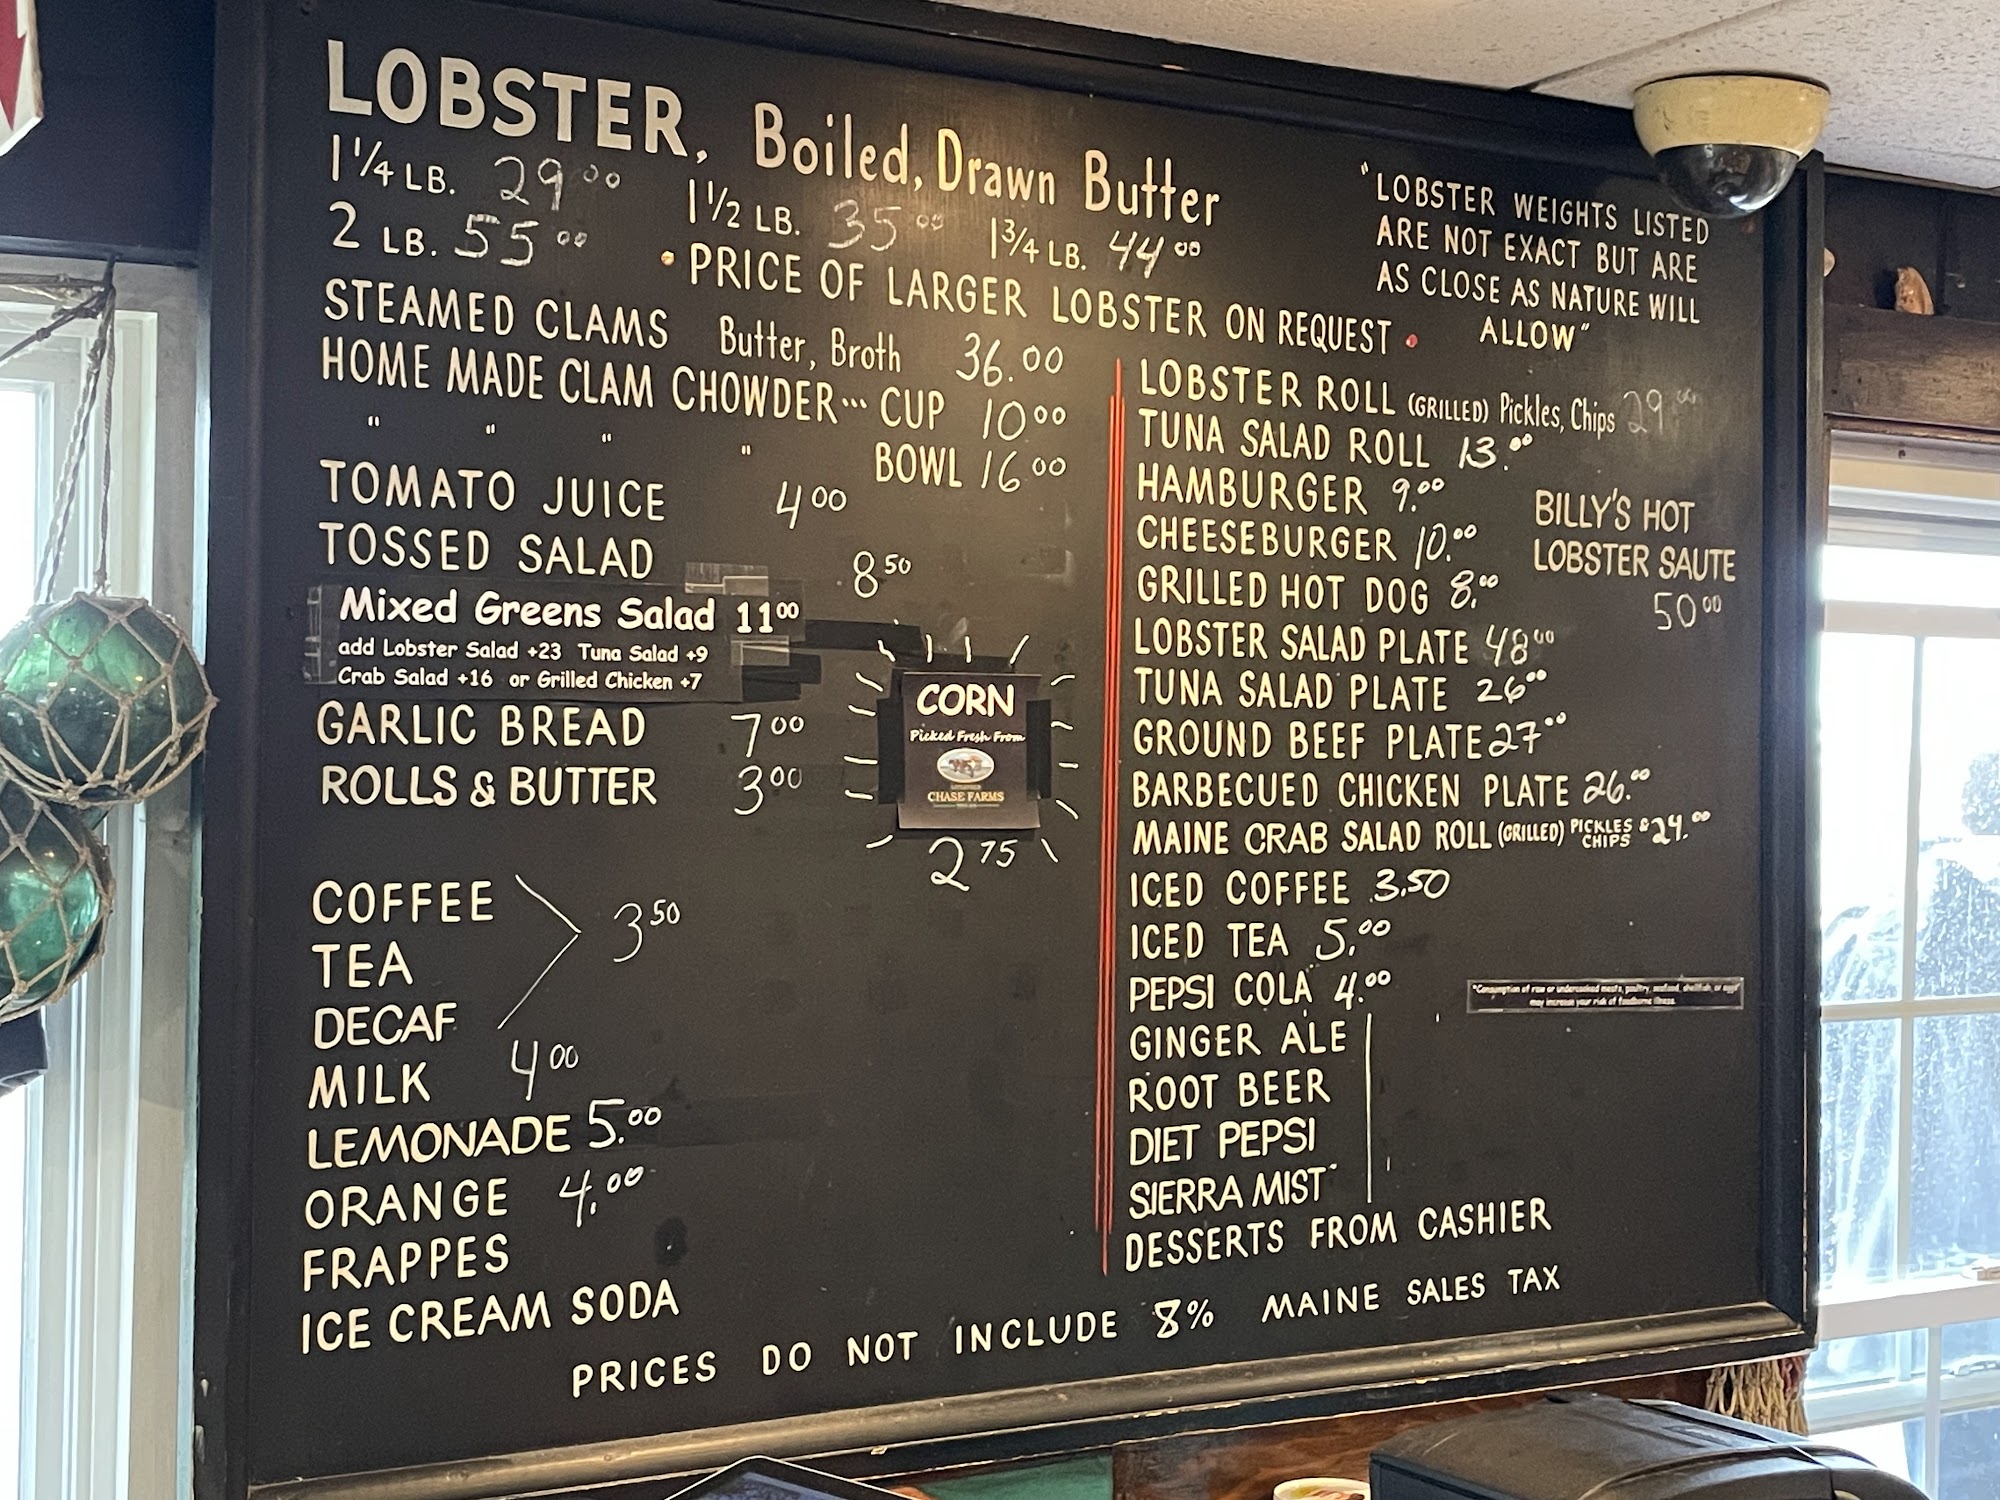 LOBSTER, Boiled, Drawn Butter
1 1/4 LB. 29.00 1 1/2 LB. 35.00 1 3/4 LB. 44.00
2 LB. 55.00 • PRICE OF LARGER LOBSTER ON REQUEST •
"LOBSTER WEIGHTS LISTED
ARE NOT EXACT BUT ARE
AS CLOSE AS NATURE WILL
ALLOW"
STEAMED CLAMS Butter, Broth 36.00
HOME MADE CLAM CHOWDER... CUP 10 00
" " " " BOWL 16 00
TOMATO JUICE 4 00
TOSSED SALAD 8 50
Mixed Greens Salad 11 00
add Lobster Salad +23 Tuna Salad +9
Crab Salad +16 or Grilled Chicken +7
GARLIC BREAD 7 00
ROLLS & BUTTER 3 00
CORN
Picked Fresh From
CHASE FARMS
2 75
COFFEE
TEA 3 50
DECAF
MILK 4 00
LEMONADE 5.00
ORANGE 4.00
FRAPPES
ICE CREAM SODA
LOBSTER ROLL (GRILLED) Pickles, Chips 29 00
TUNA SALAD ROLL 13.00
HAMBURGER 9.00
CHEESEBURGER 10.00
GRILLED HOT DOG 8.00
BILLY'S HOT
LOBSTER SAUTE
50 00
LOBSTER SALAD PLATE 48 00
TUNA SALAD PLATE 26 00
GROUND BEEF PLATE 27 00
BARBECUED CHICKEN PLATE 26.00
MAINE CRAB SALAD ROLL (GRILLED) PICKLES & CHIPS 24.00
ICED COFFEE 3.50
ICED TEA 5.00
PEPSI COLA 4.00
GINGER ALE
ROOT BEER
DIET PEPSI
SIERRA MIST
"Consumption of raw or undercooked meats, poultry, seafood, shellfish, or eggs"
may increase your risk of foodborne illness.
DESSERTS FROM CASHIER
PRICES DO NOT INCLUDE 8% MAINE SALES TAX